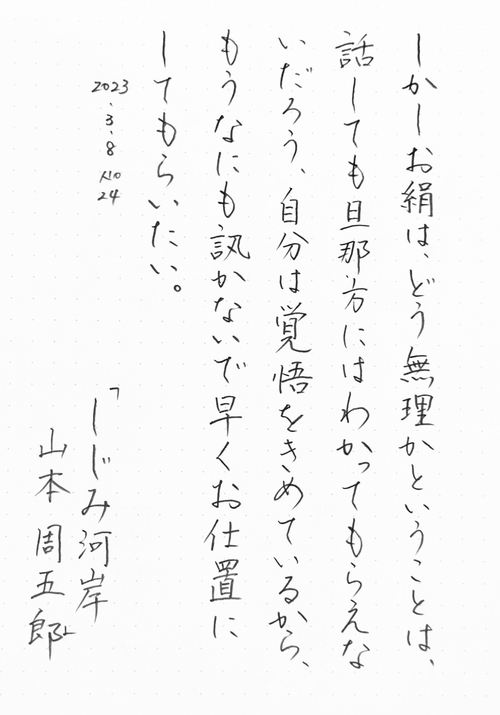 しかしお絹は、どう無理かということは、
話しても旦那方にはわかってもらえな
いだろう、自分は覚悟をきめているから、
もうなにも訊かないで早くお仕置に
してもらいたい。
2023.3.8 No 24
「しじみ河岸
山本周五郎」